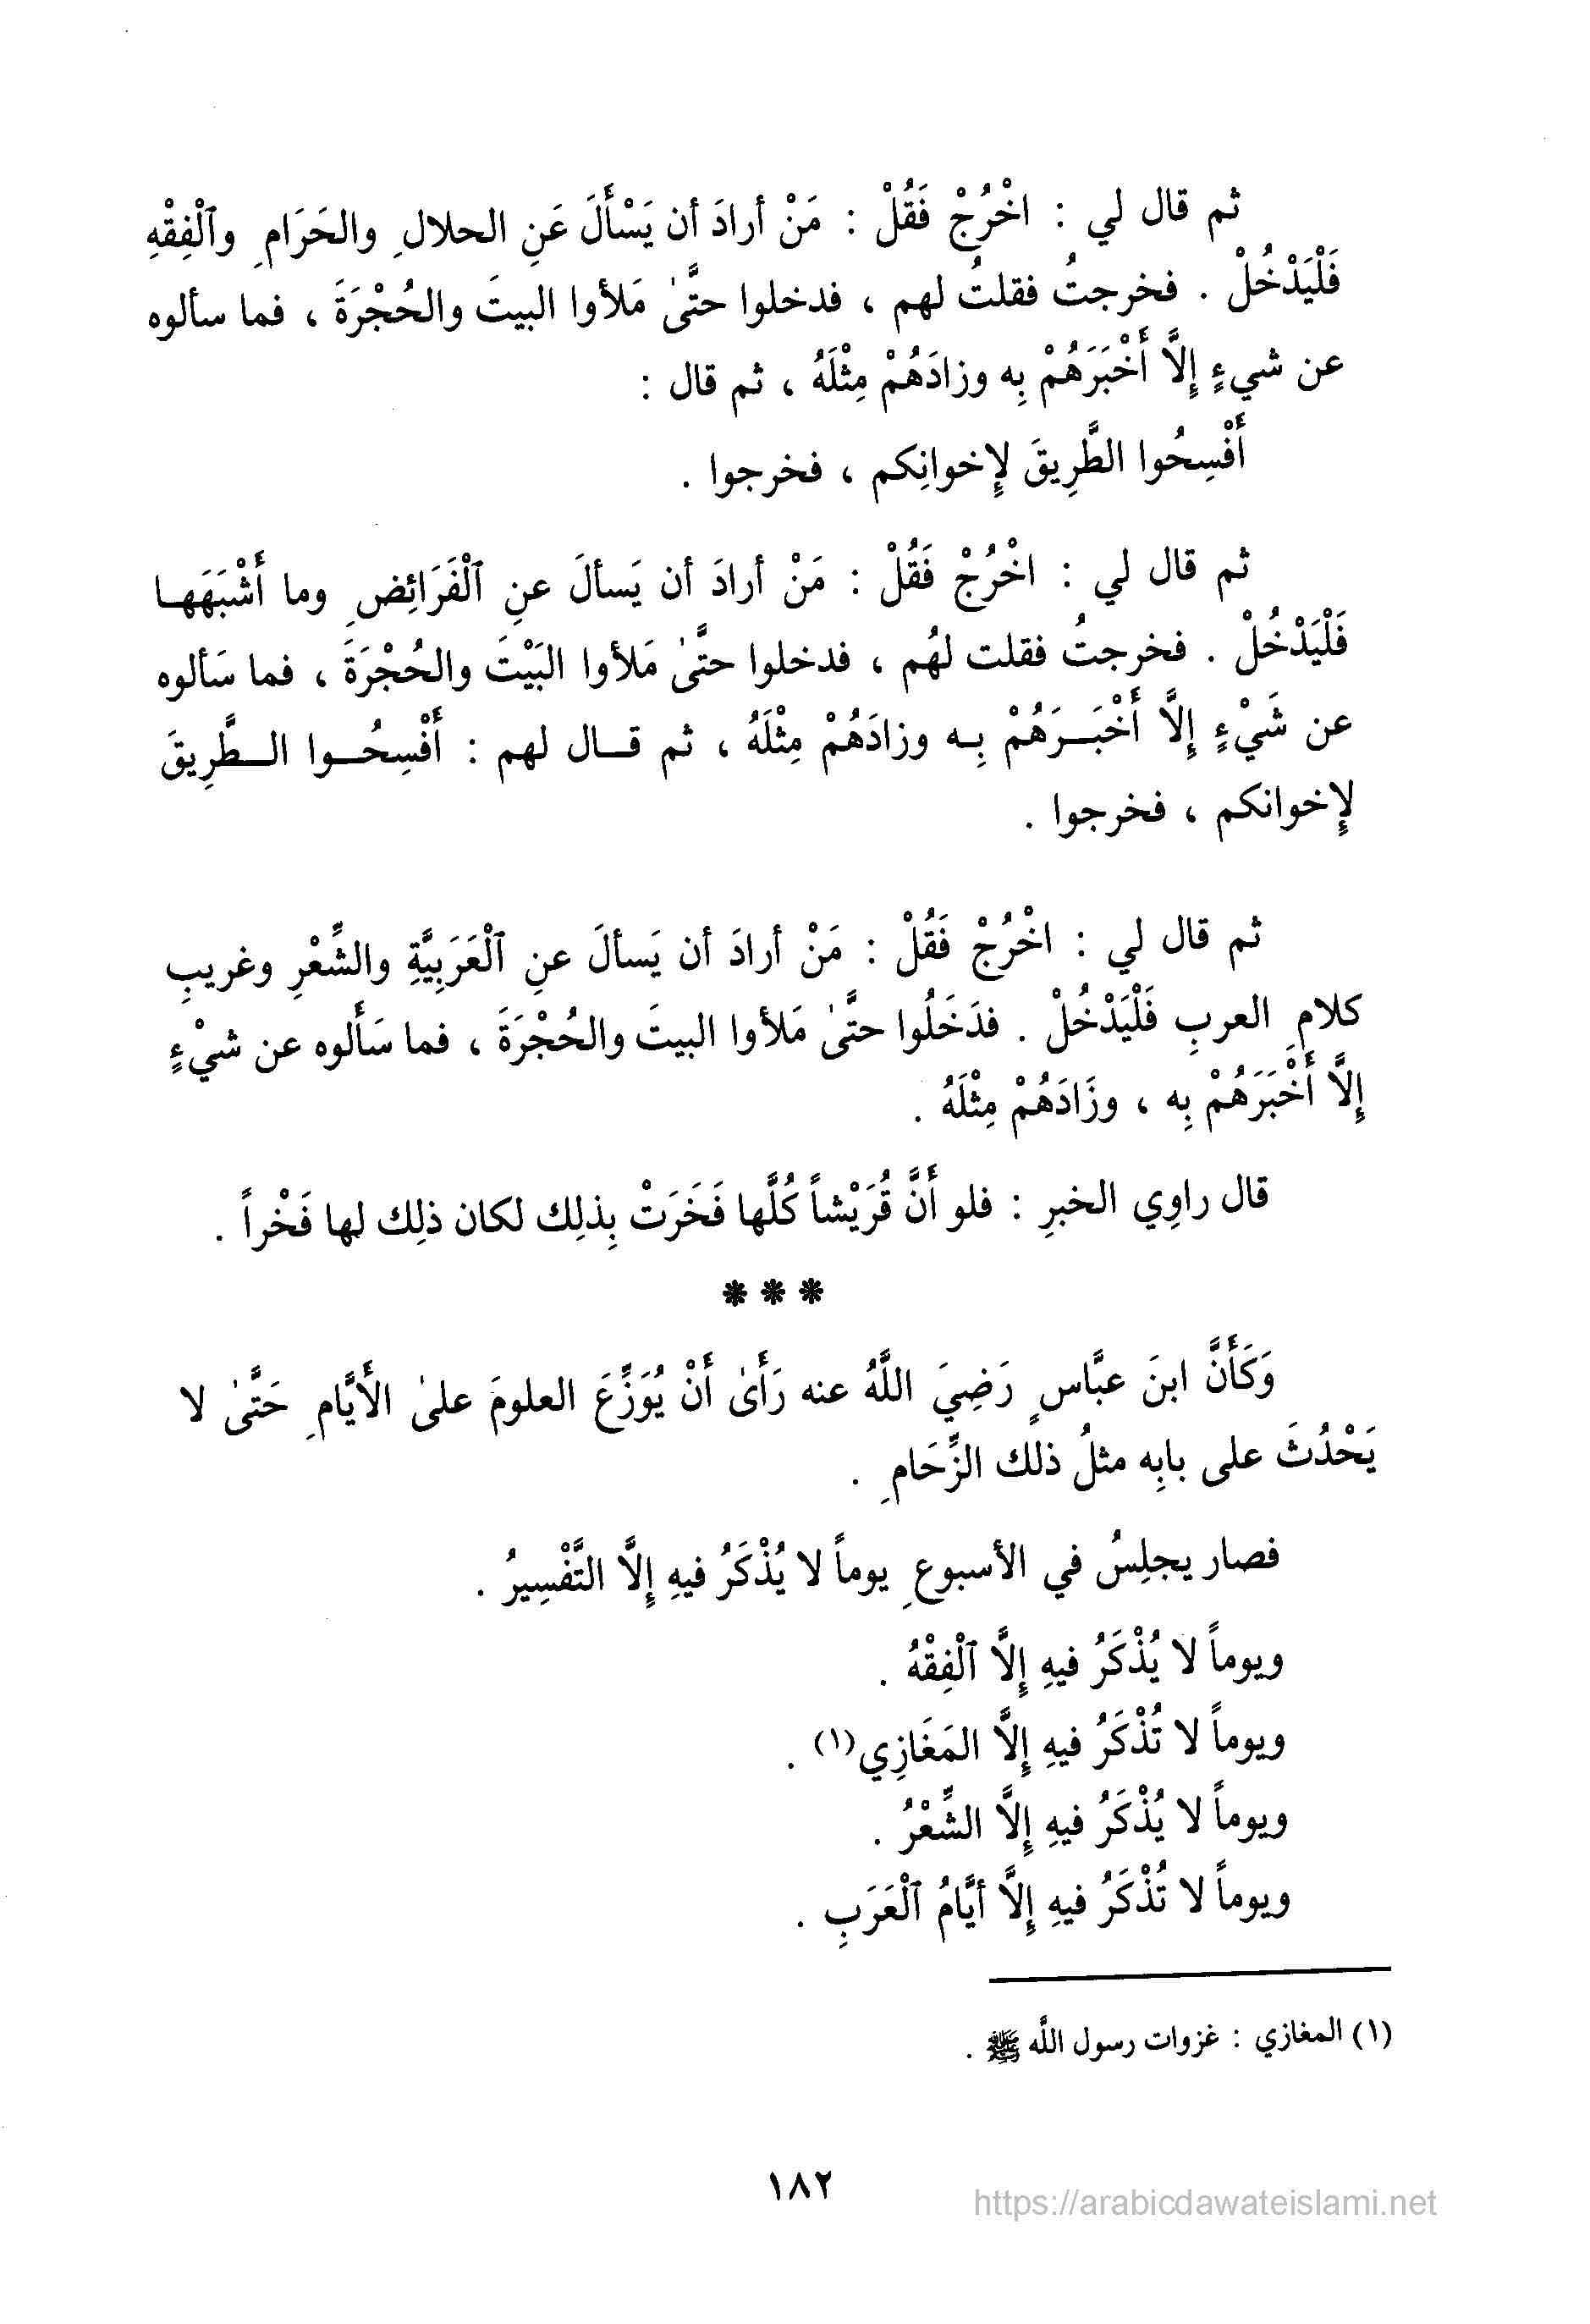 ثم قال لي : اخْرُجْ فَقُلْ : مَنْ أرادَ أن يَسْأَلَ عَنِ الحلالِ والحَرَامِ وٱلْفِقْهِ
فَلْيَدْخُلْ . فخرجتُ فقلتُ لهم ، فدخلوا حتَّىٰ مَلأوا البيتَ والحُجْرَةَ ، فما سألوه
عن شيءٍ إِلَّا أَخْبَرَهُمْ بِه وزادَهُمْ مِثْلَهُ ، ثم قال :
أَفْسِحُوا الطَّرِيقَ لِإِخوانِكم ، فخرجوا .
ثم قال لي : اخْرُجْ فَقُلْ : مَنْ أرادَ أن يَسألَ عنِ ٱلْفَرَائِضِ وما أَشْبَهَهـا
فَلْيَدْخُلْ . فخرجتُ فقلت لهُم ، فدخلوا حتَّىٰ مَلأوا البَيْتَ والحُجْرَةَ ، فما سَألوه
عن شَيْءٍ إِلَّا أَخْبَـرَهُمْ بِـه وزادَهُمْ مِثْلَهُ ، ثم قـال لهم : أَفْسِحُـوا الـطَّرِيقَ
لِإِخوانكم ، فخرجوا .
ثم قال لي : اخْرُجْ فَقُلْ : مَنْ أرادَ أن يَسألَ عنِ ٱلْعَرَبِيَّةِ والشِّعْرِ وغريبِ
كلامِ العربِ فَلْيَدْخُلْ . فدَخَلُوا حتَّىٰ مَلأوا البيتَ والحُجْرَةَ ، فما سَأَلوه عن شيْءٍ
إِلَّا أَخْبَرَهُمْ بِه ، وزَادَهُمْ مِثْلَهُ .
قال راوِي الخبرِ : فلو أَنَّ قُرَيْشاً كُلَّها فَخَرَتْ بِذلِك لكان ذلِك لها فَخْراً .
***
وَكَأَنَّ ابنَ عبَّاسٍ رَضِيَ اللَّهُ عنه رَأَىٰ أَنْ يُوَزِّعَ العلومَ علىٰ الأَيَّامِ حَتَّىٰ لا
يَحْدُثَ على بابِه مثلُ ذلك الزِّحَامِ .
فصار يجلِسُ في الأسبوعِ يوماً لا يُذْكَرُ فيهِ إِلَّا التَّفْسِيرُ .
ويوماً لا يُذْكَرُ فيهِ إِلَّا ٱلْفِقْهُ .
ويوماً لا تُذْكَرُ فيهِ إِلَّا المَغَازِي(١) .
ويوماً لا يُذْكَرُ فيهِ إِلَّا الشِّعْرُ .
ويوماً لا تُذْكَرُ فيهِ إِلَّا أيَّامُ ٱلْعَرَبِ .
(١) المغازي : غزوات رسول اللَّه ﷺ .
١٨٢
https://arabicdawateislami.net